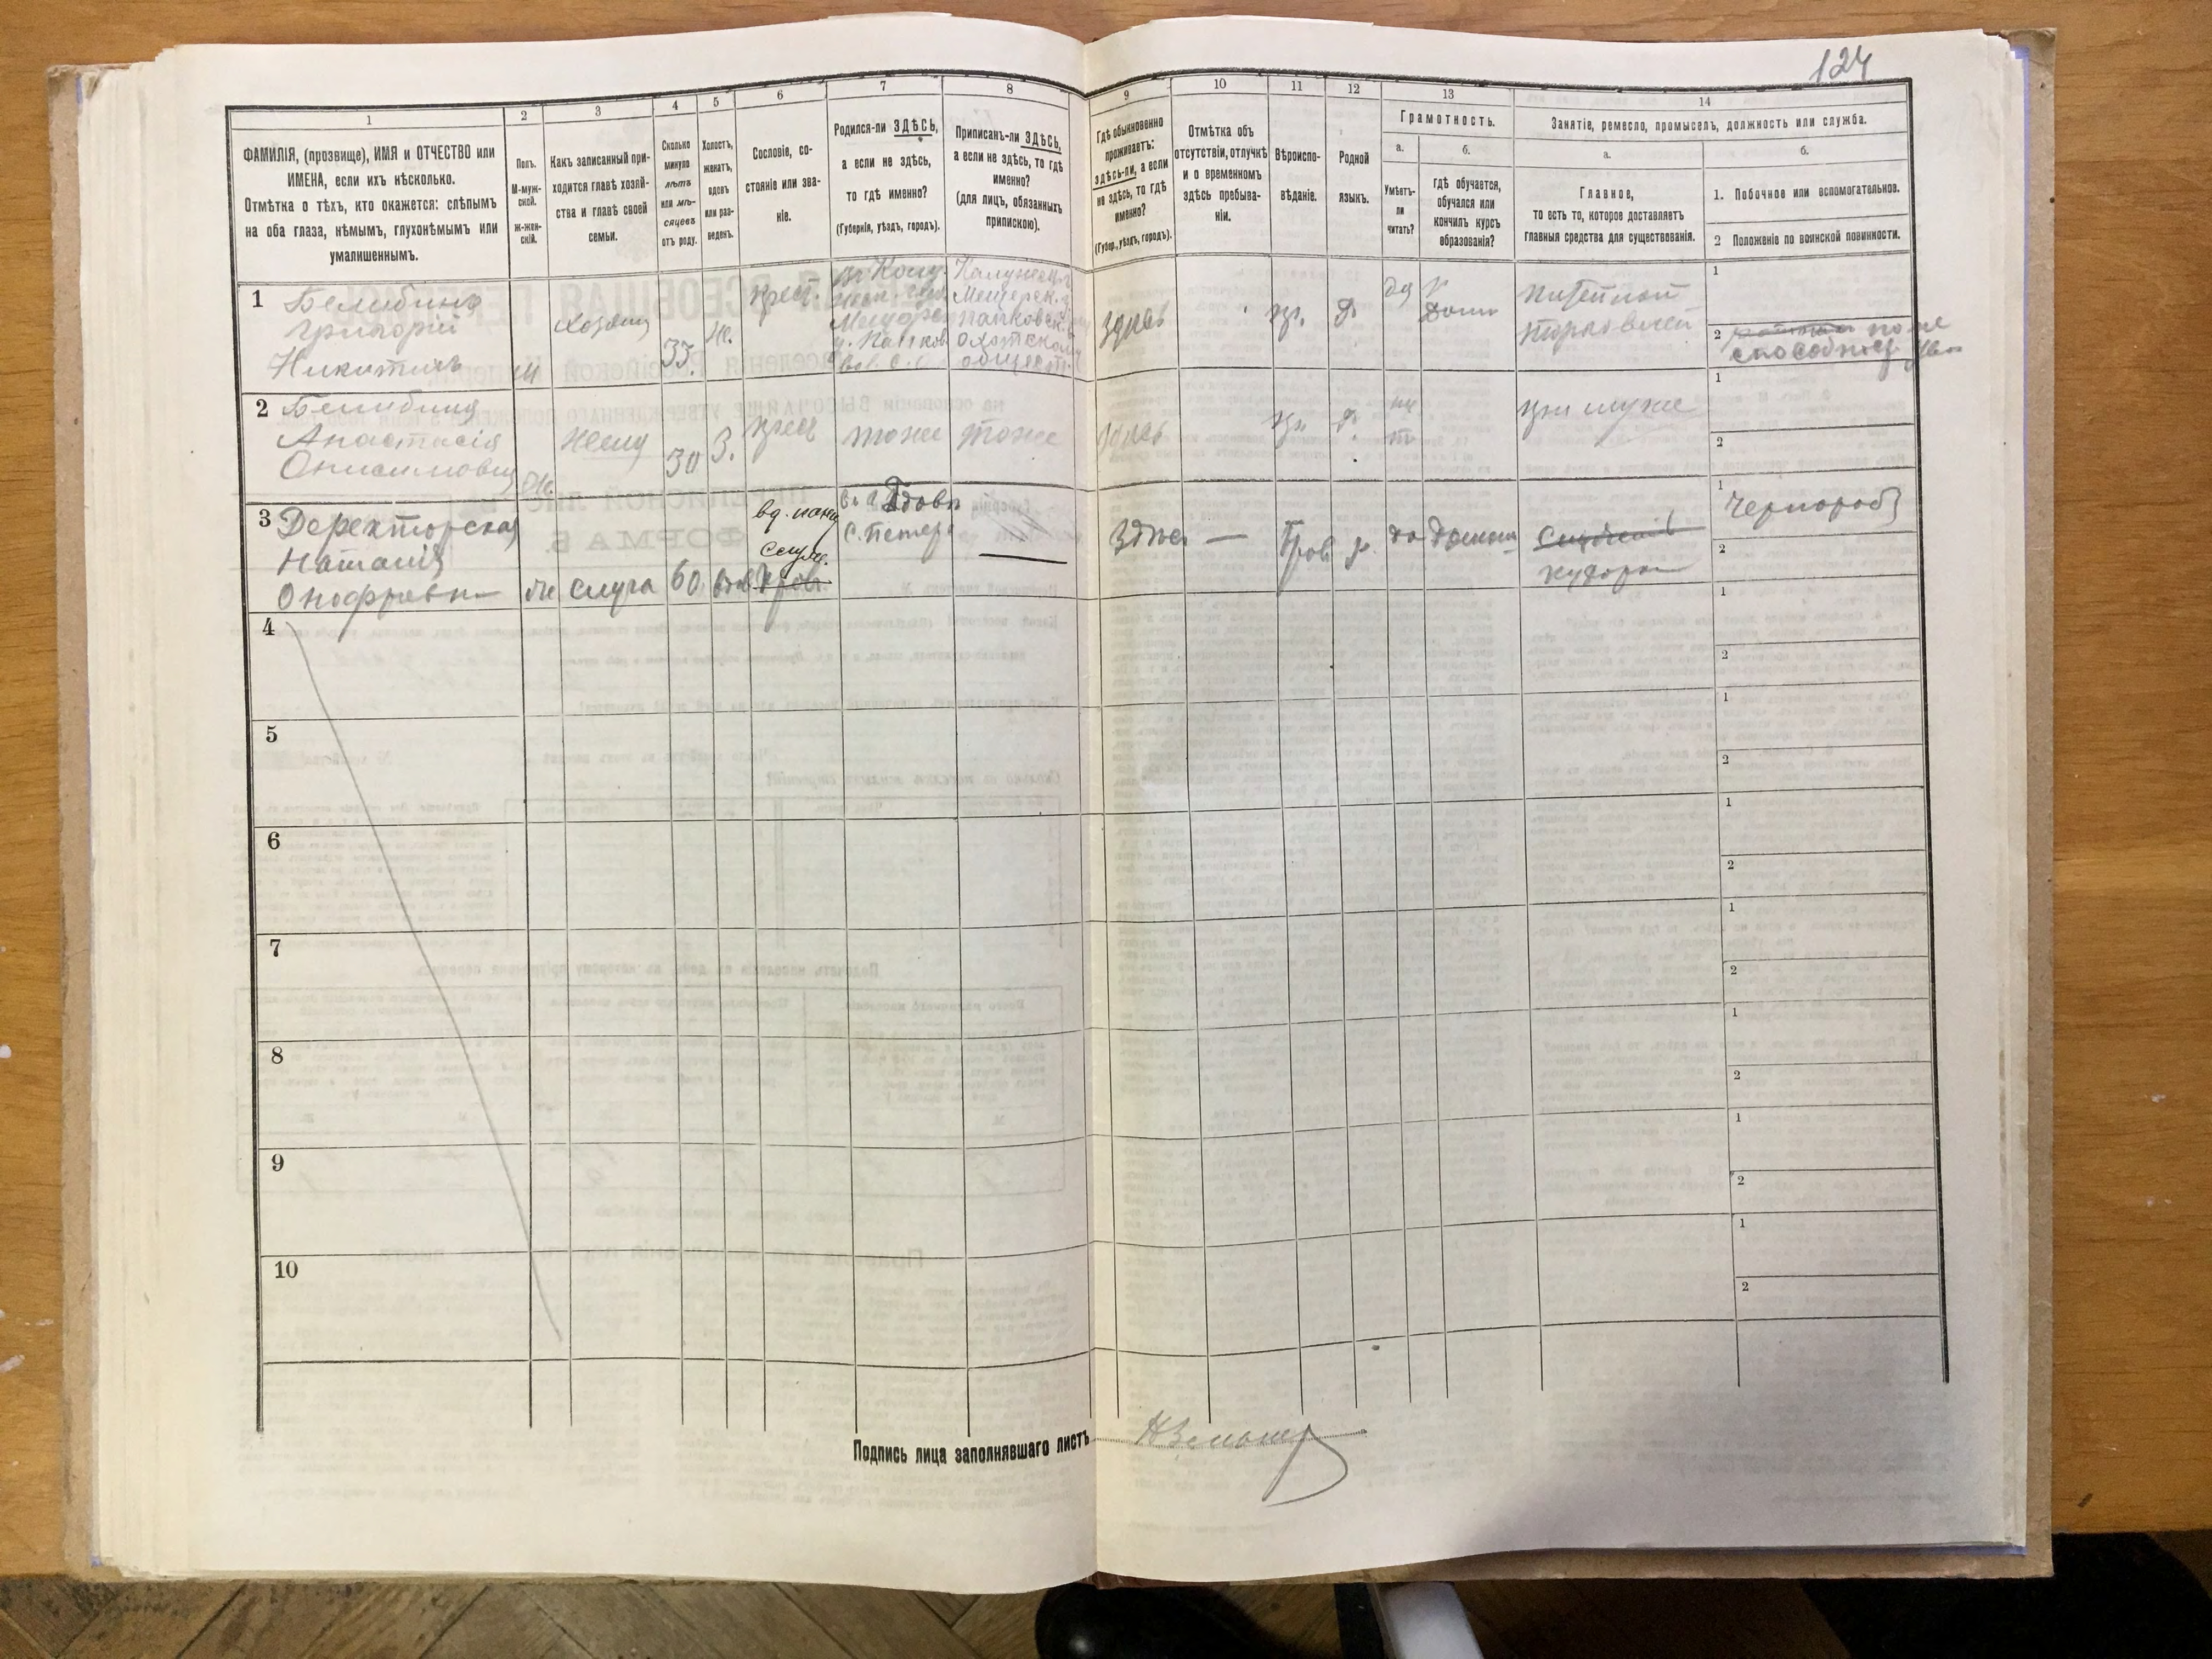 124
1
2
3
4
5
6
7
8
9
10
11
12
13
14
ФАМИЛІЯ, (прозвище), ИМЯ и ОТЧЕСТВО или
ИМЕНА, если ихъ нѣсколько.
Отмѣтка о тѣхъ, кто окажется: слѣпымъ
на оба глаза, нѣмымъ, глухонѣмымъ или
умалишеннымъ.
Полъ.
М-муж-
ской.
Ж-жен-
скій.
Какъ записанный при-
ходится главѣ хозяй-
ства и главѣ своей
семьи.
Сколько
минуло
лѣтъ
или мѣ-
сяцевъ
отъ роду.
Холостъ,
женатъ,
вдовъ
или раз-
веденъ.
Сословіе, со-
стояніе или зва-
ніе.
Родился-ли ЗДѢСЬ,
а если не здѣсь,
то гдѣ именно?
(Губернія, уѣздъ, городъ).
Приписанъ-ли ЗДѢСЬ,
а если не здѣсь, то гдѣ
именно?
(для лицъ, обязанныхъ
припискою).
Гдѣ обыкновенно
проживаетъ:
здѣсь-ли, а если
не здѣсь, то гдѣ
именно?
(Губер., уѣздъ, городъ).
Отмѣтка объ
отсутствіи, отлучкѣ
и о временномъ
здѣсь пребыва-
ніи.
Вѣроиспо-
вѣданіе.
Родной
языкъ.
Грамотность.
а.
Умѣетъ-
ли
читать?
б.
гдѣ обучается,
обучался или
кончилъ курсъ
образованія?
Занятіе, ремесло, промыселъ, должность или служба.
а.
Главное,
то есть то, которое доставляетъ
главныя средства для существованія.
б.
1. Побочное или вспомогательное.
2 Положеніе по воинской повинности.
1 Белибинъ
Григорій
Никитичъ
М
хозяинъ
35.
ж.
крест.
здѣсь
да
дома
питейной
торговлей
1
2
2 Белибина
Анастасія
Онисимовна
Ж.
жена
30
З.
крест
тоже
тоже
здѣсь
нѣ
тъ
при мужѣ
1
2
3 Деректорская
Наталія
Онофревна
Ж
слуга
60
вдов
С. Петерб
здѣсь
—
Прав
р.
да
дома
1
Чернораб
2
4
1
2
5
1
2
6
1
2
7
1
2
8
1
2
9
1
2
10
1
2
Подпись лица заполнявшаго листъ